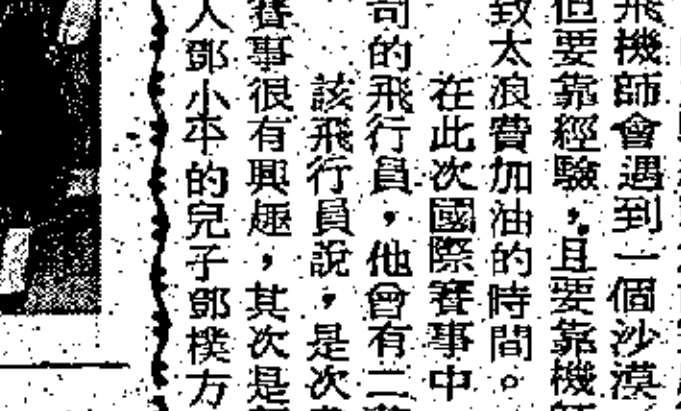 飛機師會遇到一個沙漠
但要靠經驗，且要靠機師
致太浪費加油的時間。
在此次國際賽事中
司的飛行員，他會有二
該飛行員說，是次
賽事很有興趣，其次是
人鄧小平的兒子鄧樸方